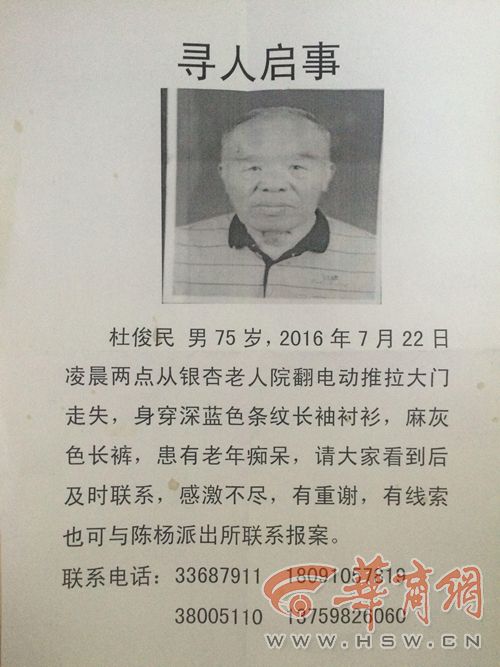 寻人启事
杜俊民 男75岁，2016年7月22日
凌晨两点从银杏老人院翻电动推拉大门
走失，身穿深蓝色条纹长袖衬衫，麻灰
色长裤，患有老年痴呆，请大家看到后
及时联系，感激不尽，有重谢，有线索
也可与陈杨派出所联系报案。
联系电话：33687911 18091057819
38005110 13759826060
华商网
WWW.HSW.CN